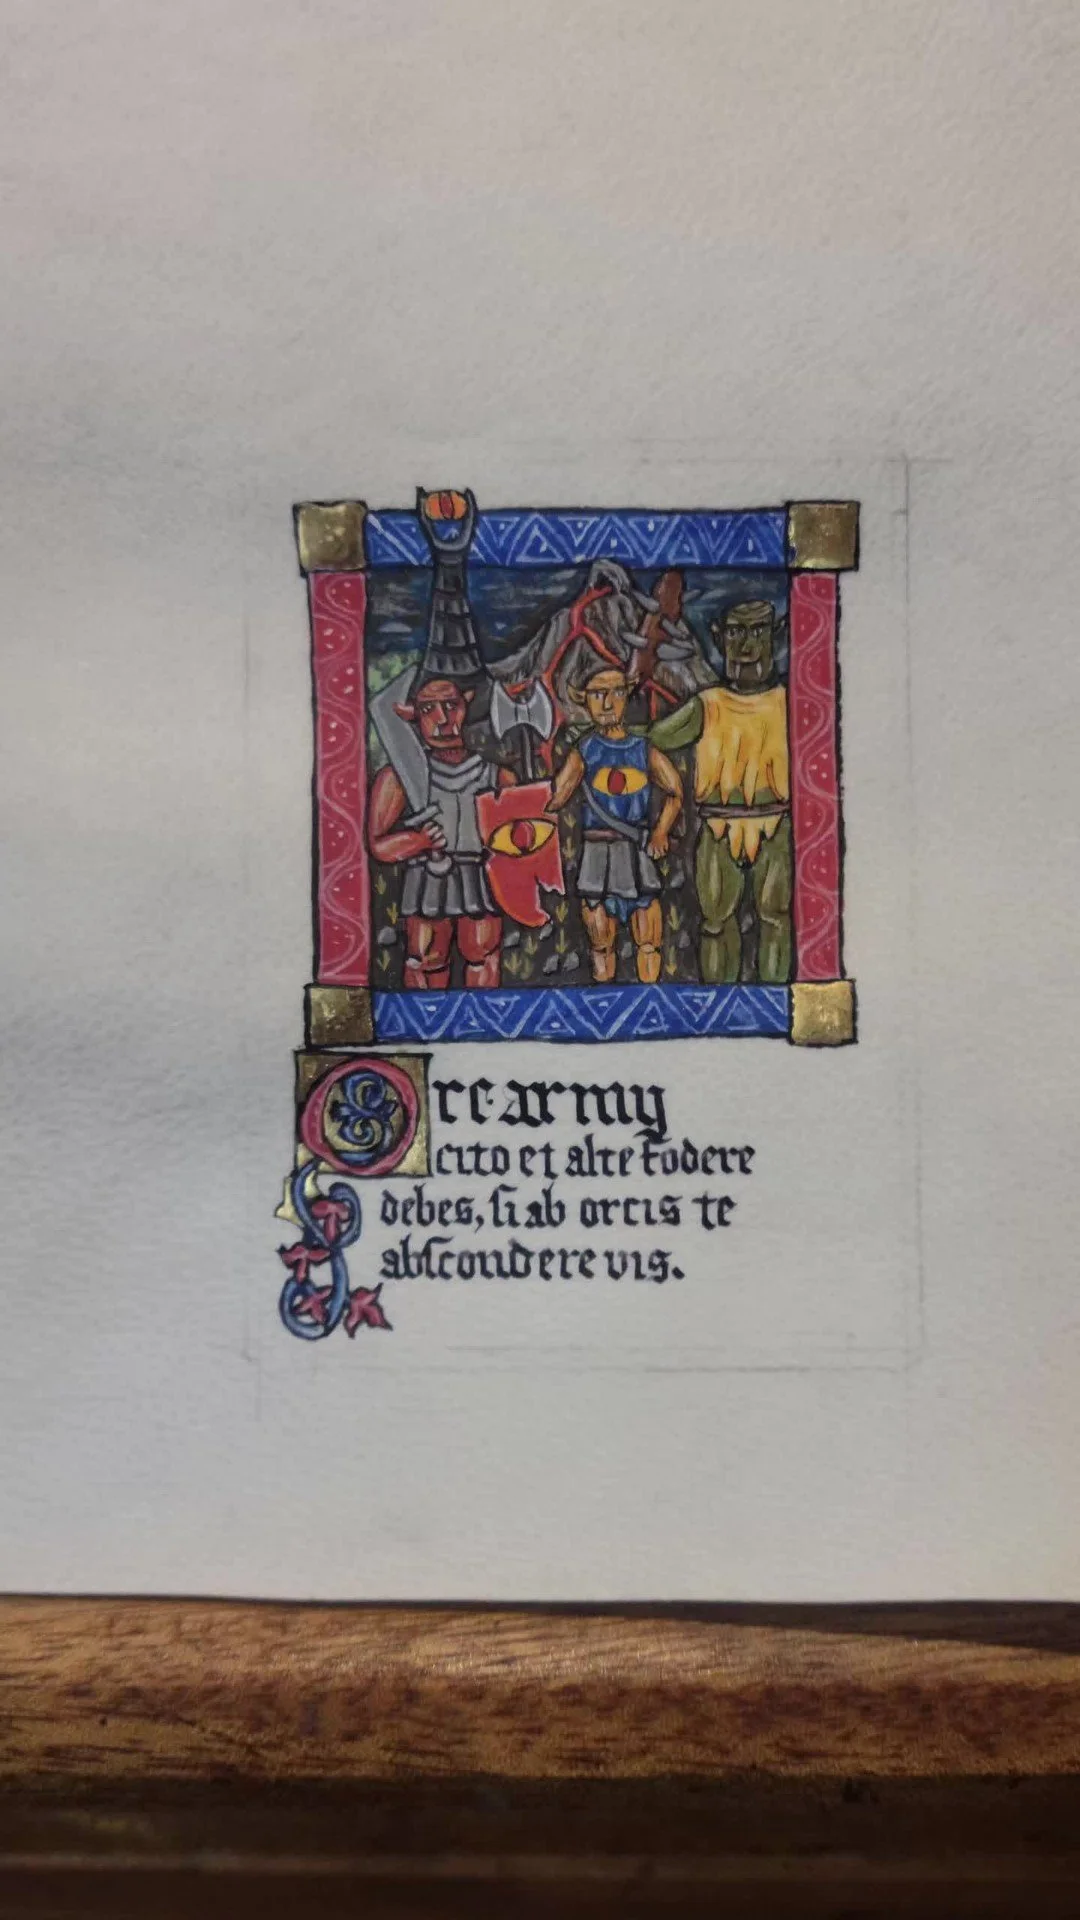 Orc army
cito et alte fodere
debes, ſi ab orcis te
abſcondere vis.